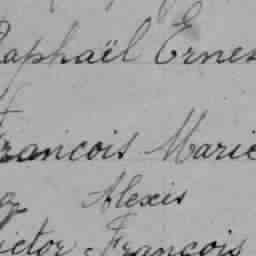 Raphaël Ernes
François Marie
Alexis
Victor François